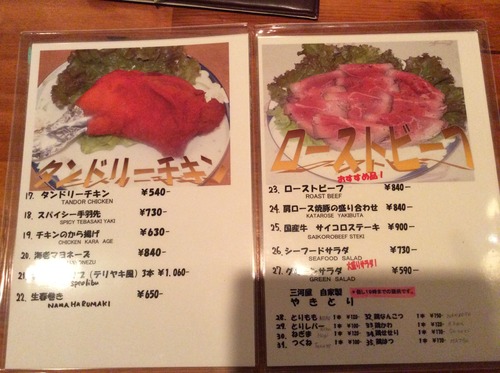 タンドリーチキン
17. タンドリーチキン ¥540-
TANDOR CHICKEN
18. スパイシー手羽先 ¥730-
SPICY TEBASAKI YAKI
19. チキンのから揚げ ¥630-
CHICKEN KARA AGE
20. 海老マヨネーズ ¥840-
21. (テリヤキ風) 3本 ¥1.060-
22. 生春巻き ¥650-
NAMA HARUMAKI
ローストビーフ
おすすめ品!
23. ローストビーフ ¥840-
ROAST BEEF
24. 肩ロース焼豚の盛り合わせ ¥840-
KATAROSE YAKIBUTA
25. 国産牛 サイコロステーキ ¥900-
SAIKOROBEEF STEKI
26. シーフードサラダ ¥730-
SEAFOOD SALAD
27. グリーンサラダ ¥590-
GREEN SALAD
三河屋 自家製
やきとり
28. とりもも 1本
29. とりレバー 1本
30. ねぎま 1本
31. つくね 1本
32. 鶏なんこつ 1本
33. 鶏かわ 1本
34. 鶏せせり 1本
35. 鶏はつ 1本